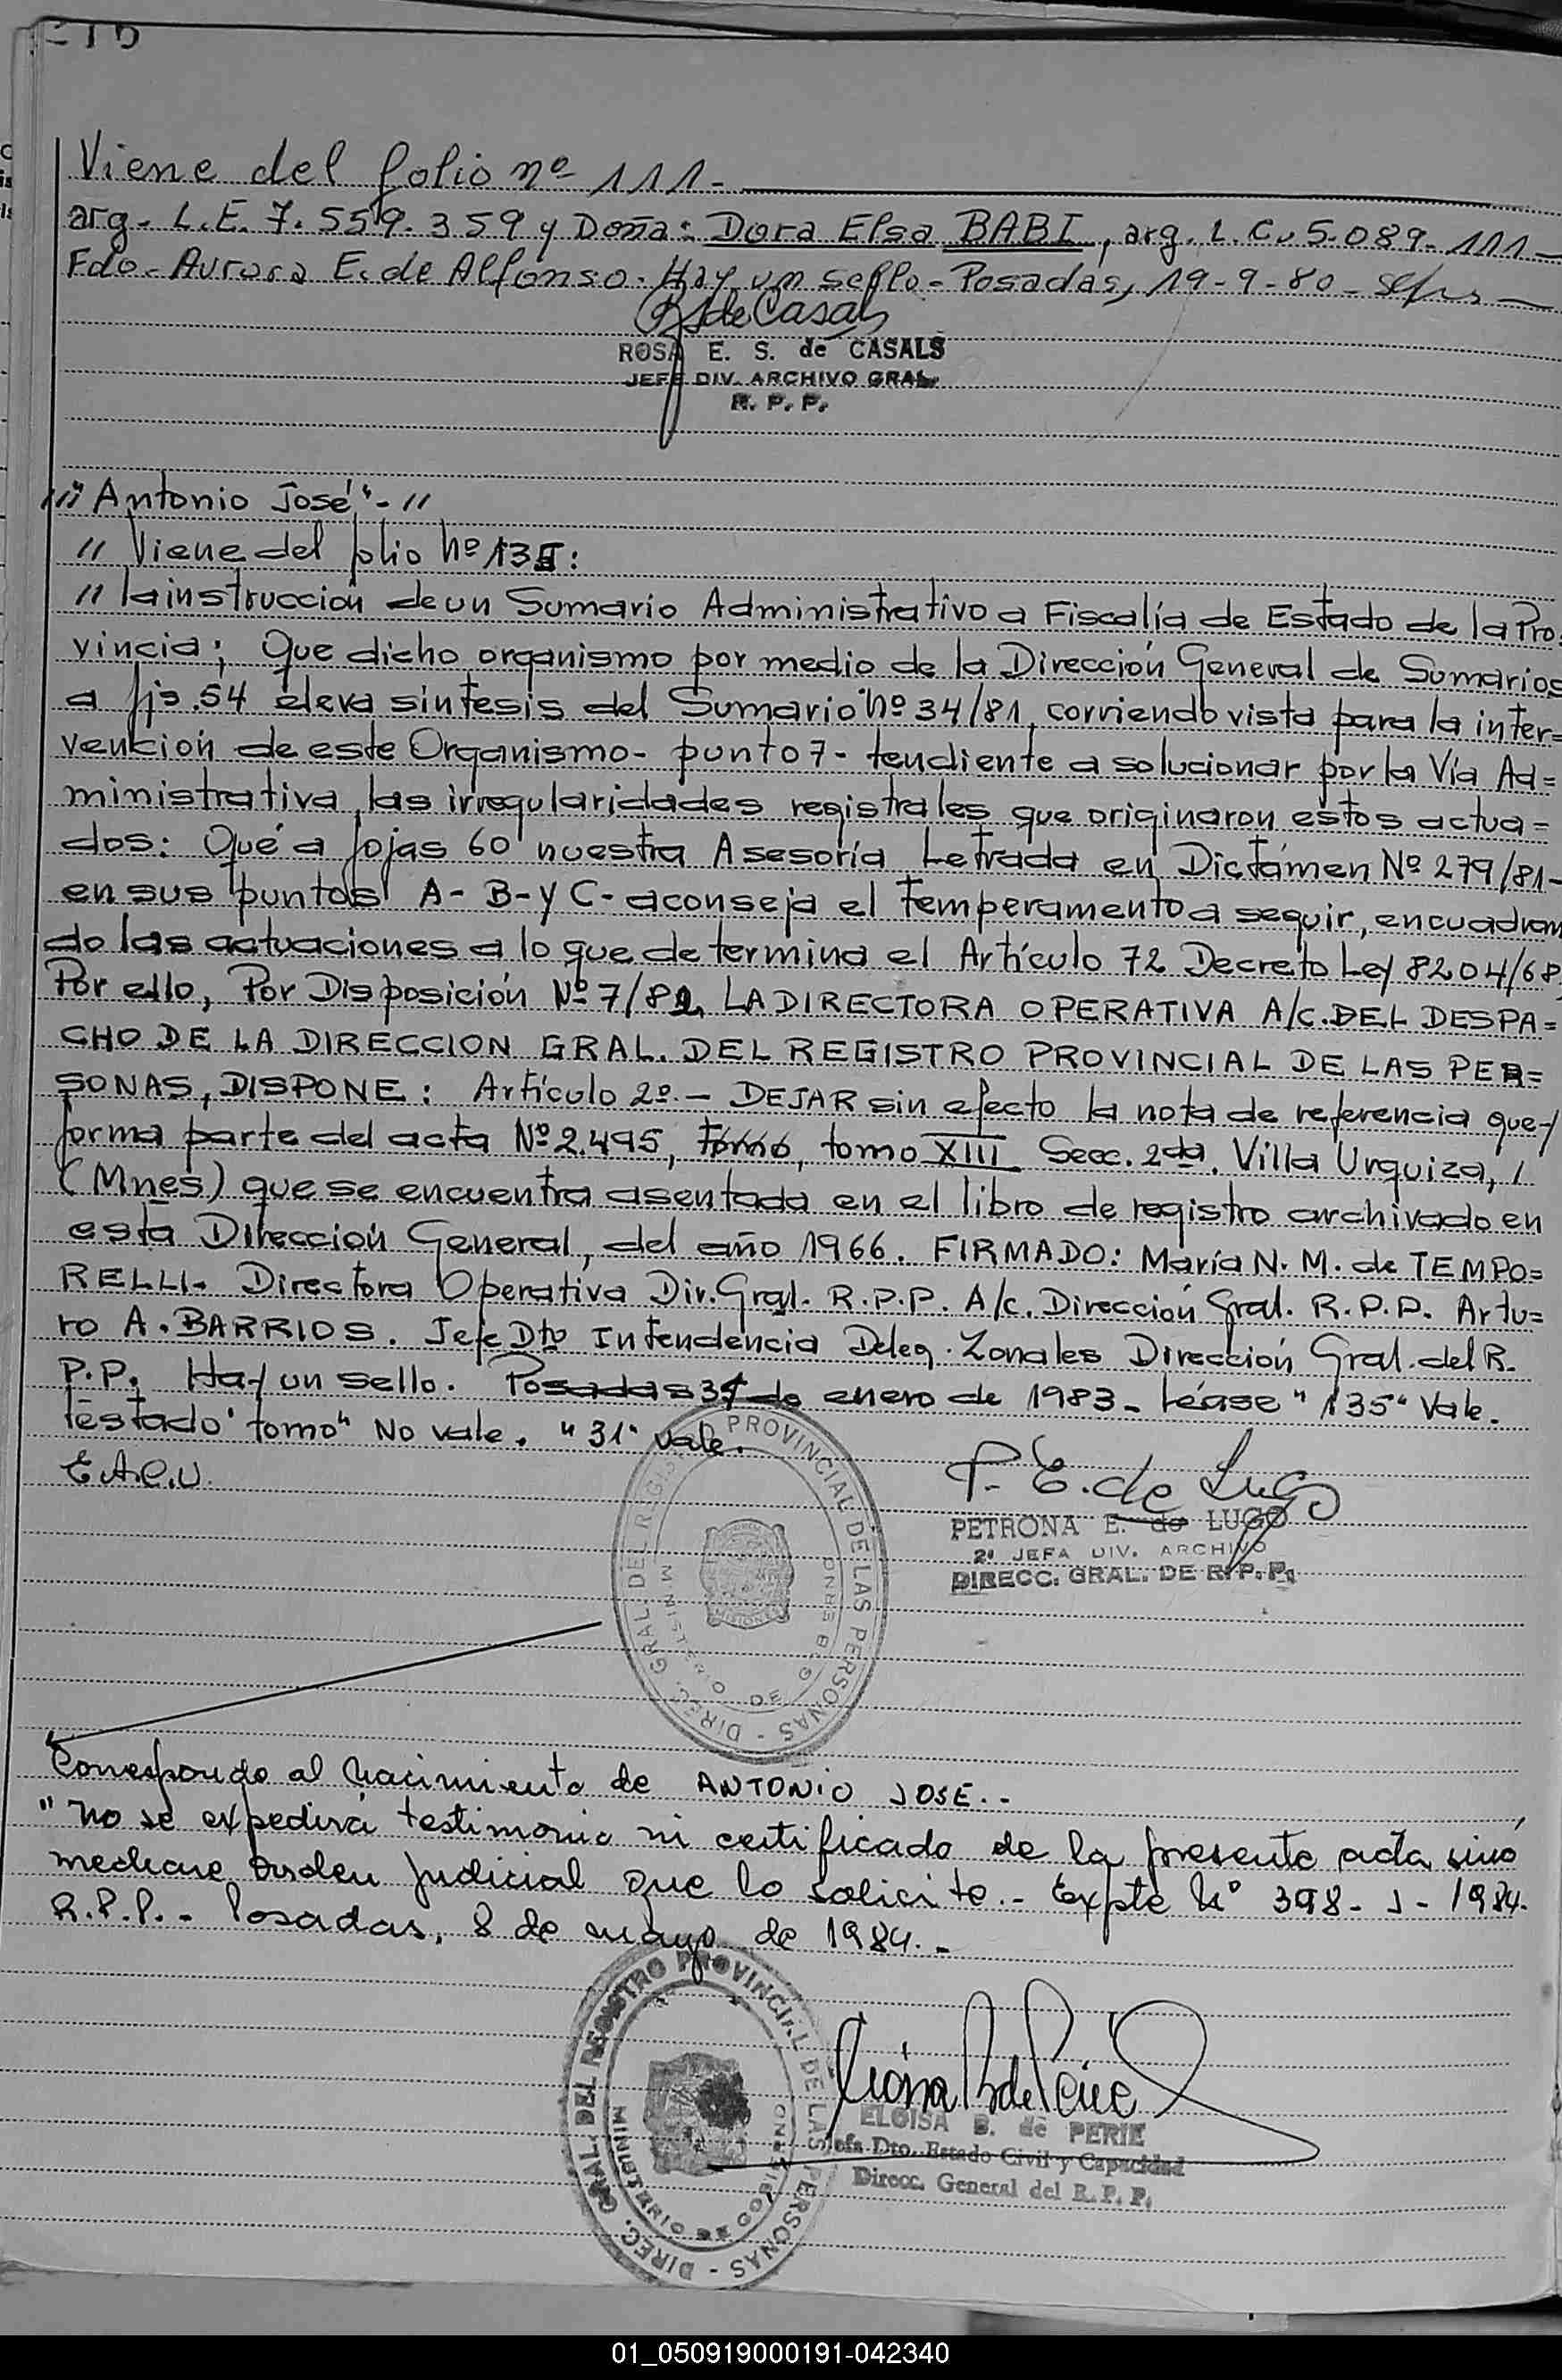 Viene del folio nº 111-
arg- L.E. 7.559.359 y Doña: Dora Elsa BABI, arg. L.C. 5.089.111-
Fdo- Aurora E. de Alfonso. Hay un sello- Posadas, 19-9-80-
RS de Casals
ROSA E. S. de CASALS
JEFE DIV. ARCHIVO GRAL.
R. P. P.
"Antonio José"-//
// Viene del folio Nº 135:
// la instrucción de un Sumario Administrativo a Fiscalía de Estado de la Pro
vincia; Que dicho organismo por medio de la Dirección General de Sumarios
a fjs. 54 eleva síntesis del Sumario Nº 34/81, corriendo vista para la inter=
vención de este Organismo- punto 7- tendiente a solucionar por la Vía Ad=
ministrativa, las irregularidades registrales que originaron estos actua=
dos: Qué a fojas 60 nuestra Asesoría Letrada en Dictámen Nº 279/81-
en sus puntos A- B- y C- aconseja el temperamento a seguir, encuadran
do las actuaciones a lo que determina el Artículo 72 Decreto Ley 8204/68
Por ello, Por Disposición Nº 7/82, LA DIRECTORA OPERATIVA A/C. DEL DESPA=
CHO DE LA DIRECCION GRAL. DEL REGISTRO PROVINCIAL DE LAS PER=
SONAS, DISPONE: Artículo 2º.- DEJAR sin efecto la nota de referencia que
forma parte del acta Nº 2.495, tomo, tomo XIII Secc. 2da. Villa Urquiza,
(Mnes) que se encuentra asentada en el libro de registro archivado en
esta Dirección General, del año 1966. FIRMADO: María N. M. de TEMPO=
RELLI. Directora Operativa Dir. Gral. R.P.P. A/c. Dirección Gral. R.P.P. Artu=
ro A. BARRIOS. Jefe Dto Intendencia Deleg. Zonales Dirección Gral. del R.
P.P. Hay un sello. Posadas 31 de enero de 1983- Léase "135" Vale.
Testado "tomo" No vale. "31" vale.
E.A.C.U.
P. E. de Lugo
PETRONA E. de LUGO
2ª JEFA DIV. ARCHIVO
DIRECC. GRAL. DE R. P. P.
DIREC. GRAL. DEL REGISTRO PROVINCIAL DE LAS PERSONAS -
MINISTERIO DE GOBIERNO
Corresponde al Nacimiento de ANTONIO JOSE.-
"No se expedirá testimonio ni certificado de la presente acta sinó
mediare orden judicial que lo solicite.- Expte Nº 398- J - 1984.
R.P.P.- Posadas, 8 de mayo de 1984.-
DIREC. GRAL. DEL REGISTRO PROVINCIAL DE LAS PERSONAS -
MINISTERIO DE GOBIERNO
ELOISA B. de PERIE
Jefa Dto. Estado Civil y Capacidad
Direcc. General del R. P. P.
01_050919000191-042340